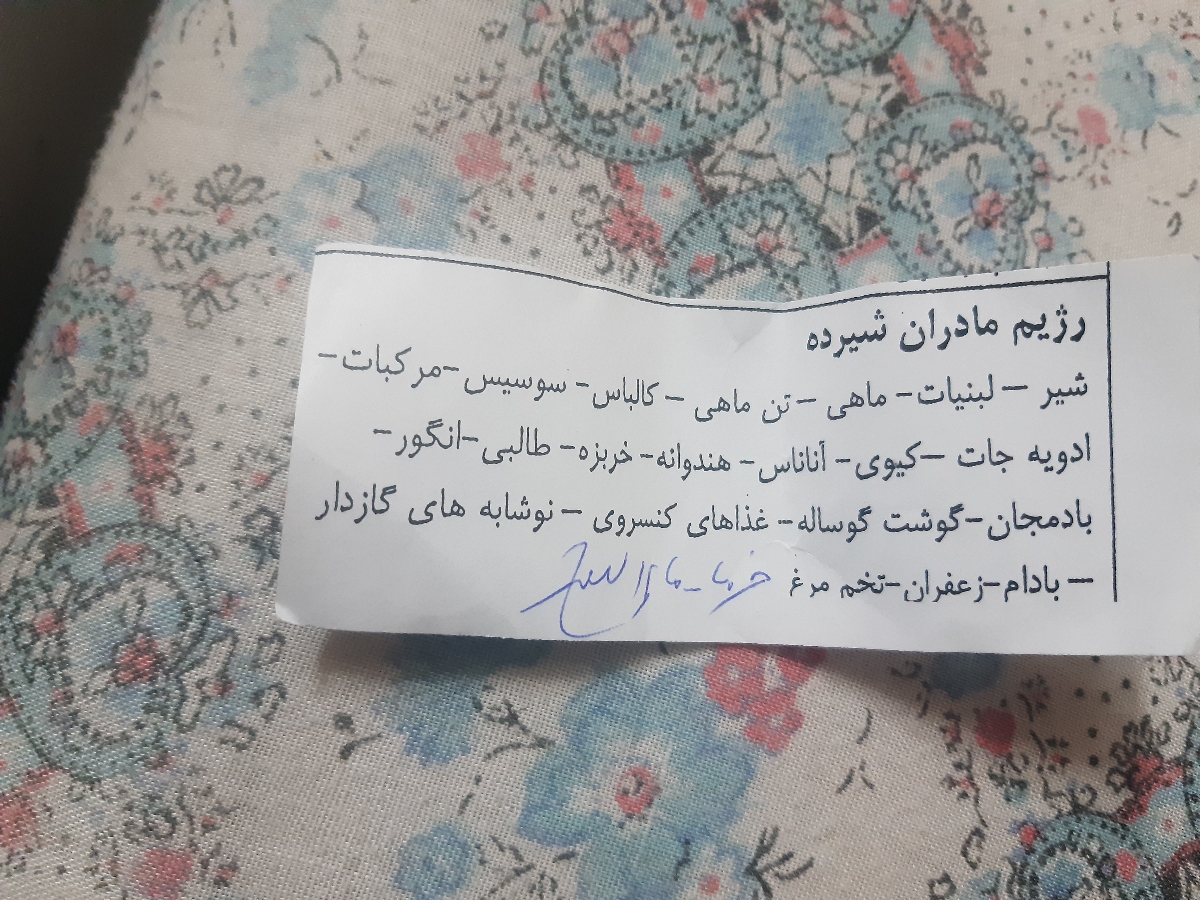 رژیم مادران شیرده
شیر – لبنیات- ماهی – تن ماهی – کالباس- سوسیس-مرکبات-
ادویه جات –کیوی- آناناس- هندوانه- خربزه- طالبی-انگور-
بادمجان-گوشت گوساله- غذاهای کنسروی –نوشابه های گازدار
– بادام-زعفران-تخم مرغ خرما -